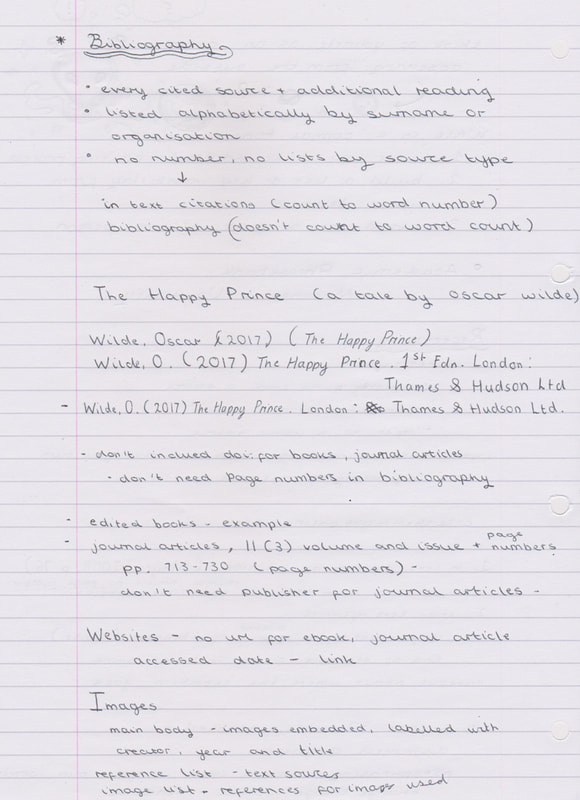 * Bibliography
• every cited source + additional reading
• listed alphabetically by surname or
organisation
• no number, no lists by source type
↓
in text citations (count to word number)
bibliography (doesn't count to word count)
The Happy Prince (a tale by oscar wilde)
Wilde, Oscar (2017) (The Happy Prince)
Wilde, O. (2017) The Happy Prince. 1st Edn. London:
Thames & Hudson Ltd
- Wilde, O. (2017) The Happy Prince. London: Thames & Hudson Ltd.
- don't inclued doi: for books, journal articles
- don't need page numbers in bibliography
- edited books - example
- journal articles, 11(3) volume and issue + page numbers
pp. 713-730 (page numbers) -
don't need publisher for journal articles -
Websites - no url for ebook, journal article
accessed date - link
Images
main body - images embedded, labelled with
creator, year and title
reference list - text sources
image list - references for images used